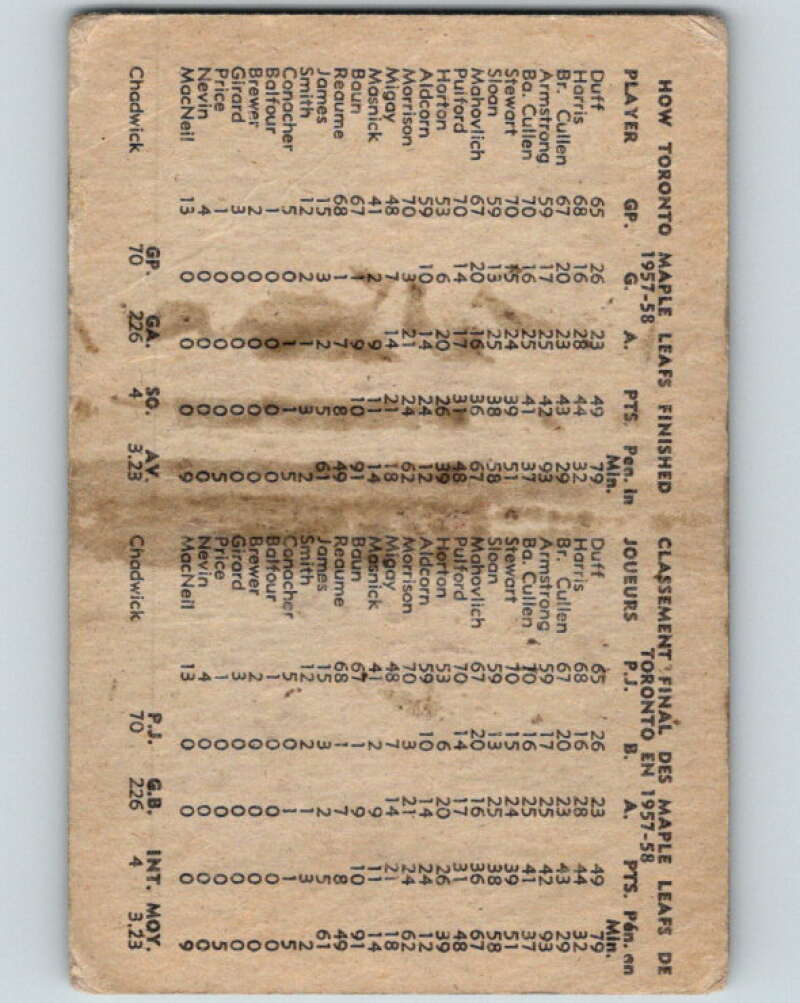 HOW TORONTO MAPLE LEAFS FINISHED
1957-58
PLAYER GP. G. A. PTS. Pen. in Min.
Duff 65 26 23 49 79
Harris 68 16 28 44 32
Br. Cullen 67 20 23 43 29
Armstrong 59 17 25 42 93
Ba. Cullen 70 16 25 41 37
Stewart 70 15 24 39 51
Sloan 59 13 25 38 58
Mahovlich 67 20 16 36 67
Pulford 70 14 17 31 48
Horton 53 6 20 26 39
Aldcorn 59 10 14 24 12
Morrison 70 3 21 24 62
Migay 48 7 14 21 18
Masnick 41 2 9 11 14
Baun 67 1 9 10 91
Reaume 68 1 7 8 49
James 15 3 2 5 61
Smith 12 2 1 3 2
Conacher 5 0 1 1 5
Balfour 1 0 0 0 0
Brewer 2 0 0 0 0
Girard 3 0 0 0 0
Price 1 0 0 0 5
Nevin 4 0 0 0 0
MacNeil 13 0 0 0 9
GP. GA. SO. AV.
Chadwick 70 226 4 3.23
CLASSEMENT FINAL DES MAPLE LEAFS DE
TORONTO EN 1957-58
JOUEURS P.J. B. A. PTS. Pén. en Min.
Duff 65 26 23 49 79
Harris 68 16 28 44 32
Br. Cullen 67 20 23 43 29
Armstrong 59 17 25 42 93
Ba. Cullen 70 16 25 41 37
Stewart 70 15 24 39 51
Sloan 59 13 25 38 58
Mahovlich 67 20 16 36 67
Pulford 70 14 17 31 48
Horton 53 6 20 26 39
Aldcorn 59 10 14 24 12
Morrison 70 3 21 24 62
Migay 48 7 14 21 18
Masnick 41 2 9 11 14
Baun 67 1 9 10 91
Reaume 68 1 7 8 49
James 15 3 2 5 61
Smith 12 2 1 3 2
Conacher 5 0 1 1 5
Balfour 1 0 0 0 0
Brewer 2 0 0 0 0
Girard 3 0 0 0 0
Price 1 0 0 0 5
Nevin 4 0 0 0 0
MacNeil 13 0 0 0 9
P.J. G.B. INT. MOY.
Chadwick 70 226 4 3.23